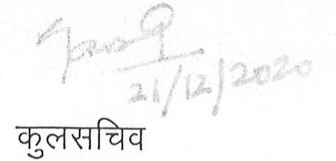 21/12/2020
कुलसचिव